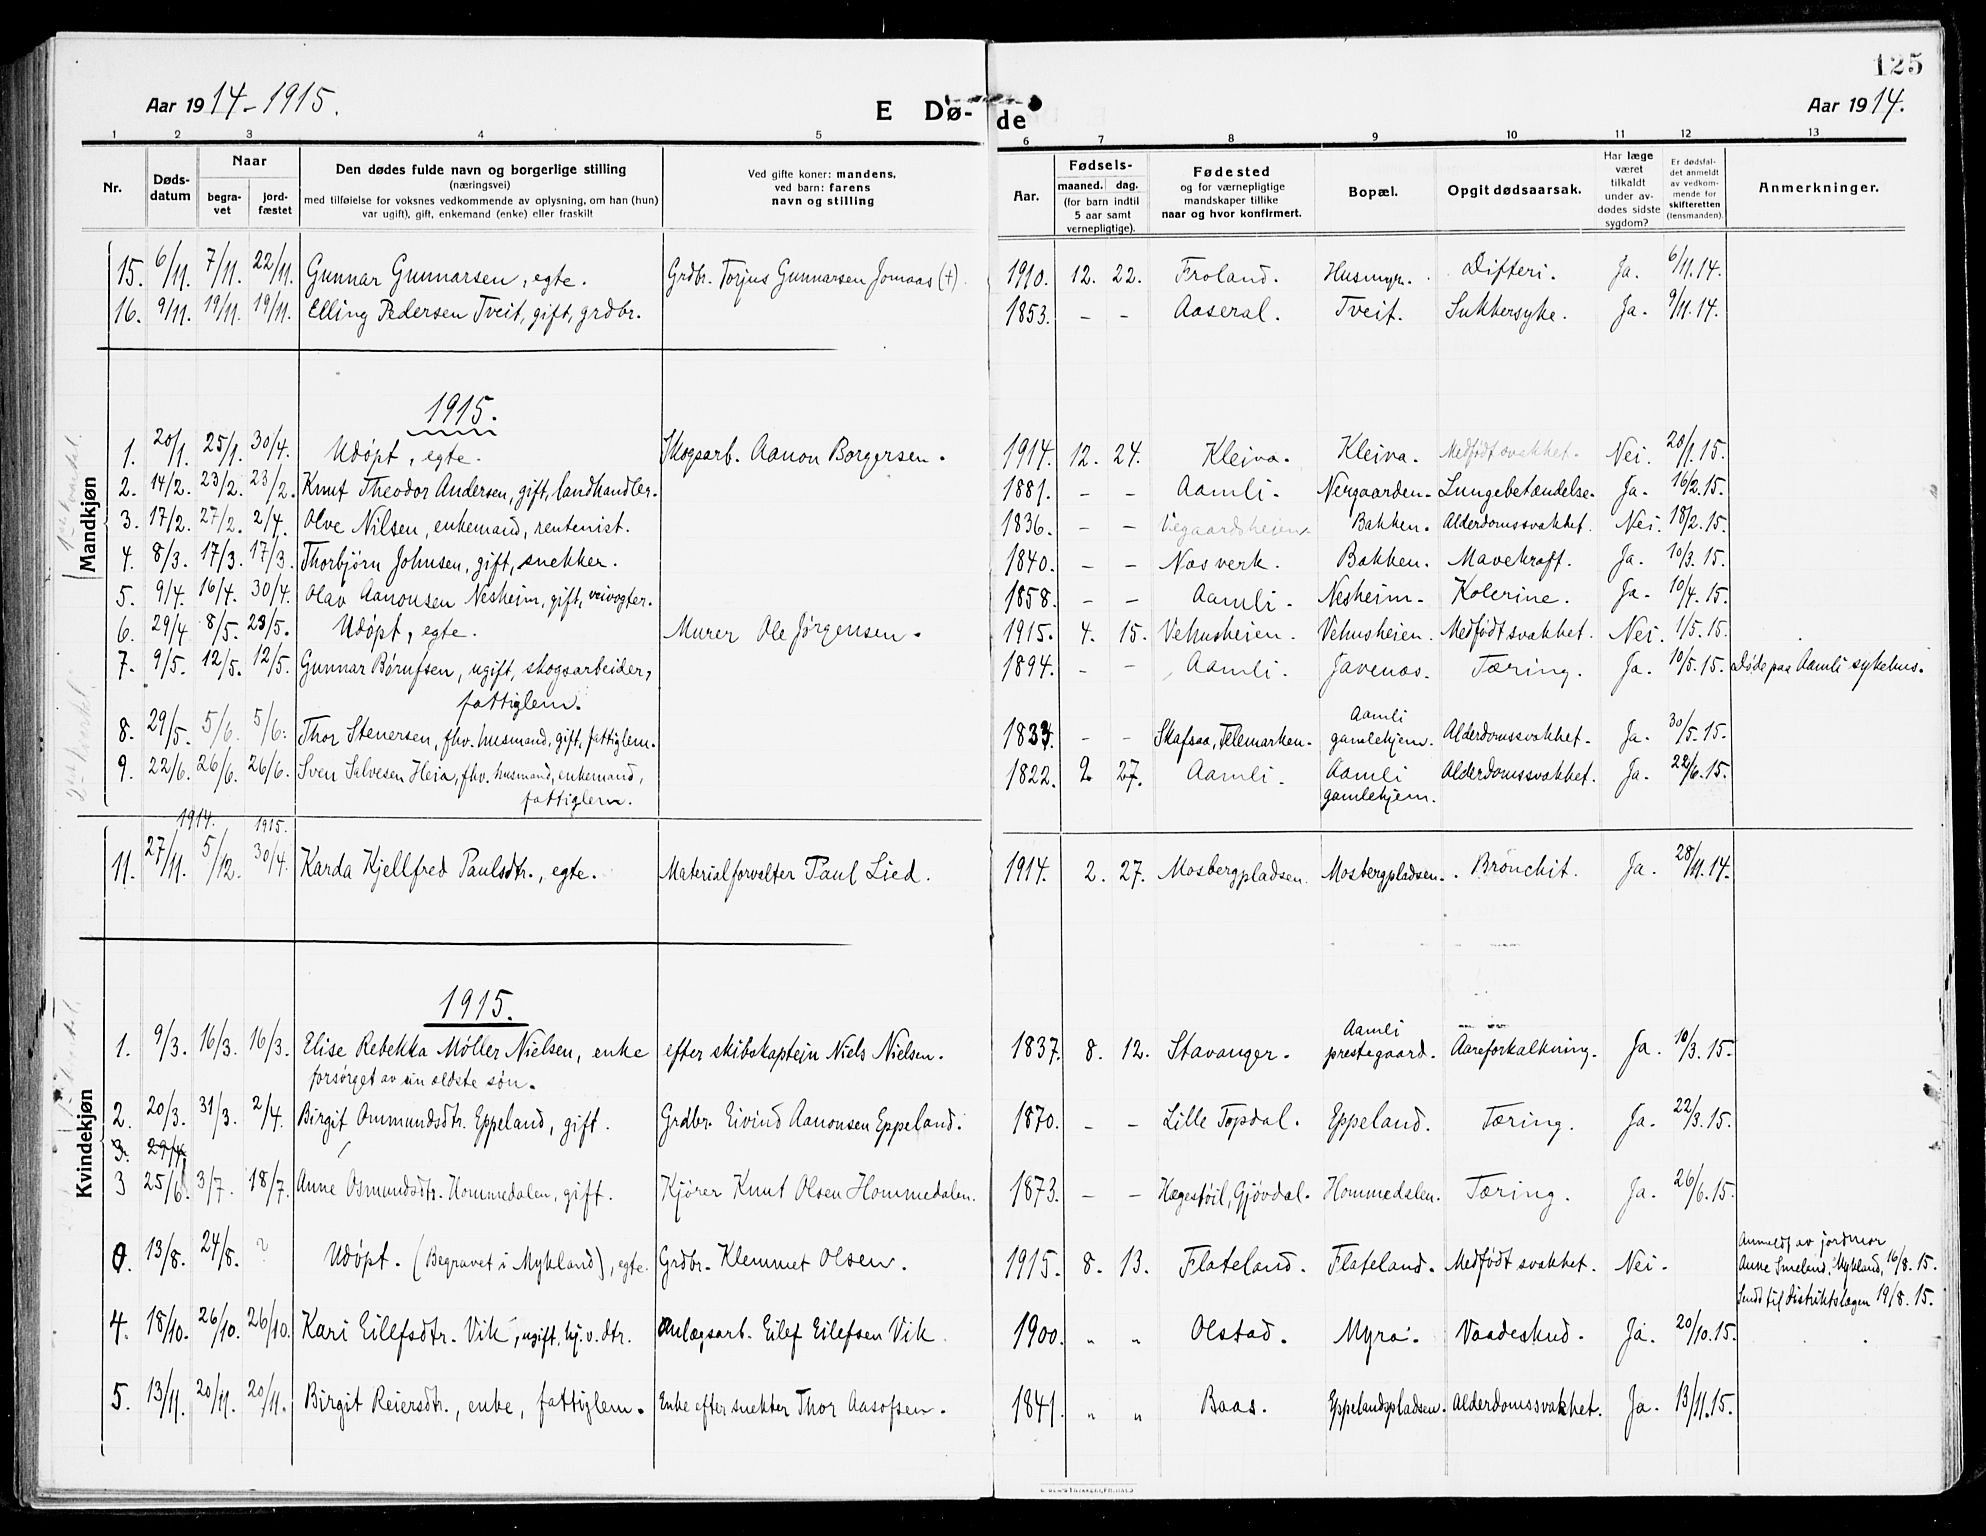 125
Aar 1914-1915.
E Dø-de
Aar 1914.
1 2 3 4 5 6 7 8 9 10 11 12 13
Nr. Døds-datum Naar begra-vet jord-fæstet
Den dødes fulde navn og borgerlige stilling
(næringsvei)
med tilføielse for voksnes vedkommende av oplysning, om han (hun)
var ugift), gift, enkemand (enke) eller fraskilt
Ved gifte koner: mandens,
ved barn: farens
navn og stilling
Fødsels-
Aar. maaned. dag.
(for barn indtil
5 aar samt
vernepligtige).
Fødested
og for værnepligtige
mandskaper tillike
naar og hvor konfirmert.
Bopæl.
Opgit dødsaarsak.
Har læge
været
tilkaldt
under av-
dødes sidste
sygdom?
Er dødsfal-
det anmeldt
av vedkom-
mende for
skifteretten
(lensmanden).
Anmerkninger.
Mandkjøn
15. 6/11. 7/11. 22/11. Gunnar Gunnarsen, egte. Grdbr. Torjus Gunnarsen Jomaas (+). 1910. 12. 22. Froland. Husmyr. Difteri. Ja. 6/11.14.
16. 9/11. 19/11. 19/11. Elling Pedersen Tveit, gift, grdbr. 1853. - - Aaseral. Tveit. Sukkersyke. Ja. 9/11.14.
1915.
1. 20/1. 25/1. 30/4. Udøpt, egte. Skogsarb. Aanon Borgersen. 1914. 12. 24. Kleiva. Kleiva. Medfødt svakhet. Nei. 20/1.15.
2. 14/2. 23/2. 23/2. Knut Theodor Andersen, gift, landhandler. 1881. - - Aamli. Nergaarden. Lungebetændelse. Ja. 16/2.15.
3. 17/2. 27/2. 2/4. Olve Nilsen, enkemand, rentenist. 1836. - - Vegaardsheien. Bakken. Alderdomssvakhet. Nei. 18/2.15.
4. 8/3. 17/3. 17/3. Thorbjørn Johnsen, gift, snekker. 1840. - - Nosverk. Bakken. Mavekræft. Ja. 10/3.15.
5. 9/4. 16/4. 30/4. Olav Aanonsen Nesheim, gift, veivogter. 1858. - - Aamli. Nesheim. Kolerine. Ja. 10/4.15.
6. 29/4 8/5. 23/5. Udøpt, egte. Murer Ole Jørgensen. 1915. 4. 15. Vehusheien. Vehusheien. Medfødt svakhet. Nei. 1/5.15.
7. 9/5. 12/5. 12/5. Gunnar Børufsen, ugift, skogsarbeider, 1894. - - Aamli. Javenæs. Tæring. Ja. 10/5.15. Døde paa Aamli sykehus.
fattiglem.
8. 29/5. 5/6. 5/6. Thor Stenersen, fhv. husmand, gift, fattiglem. - - Skafsaa, Telemarken. Aamli gamlehjem. Alderdomssvakhet. Ja. 30/5.15.
9. 22/6. 26/6. 26/6. Sven Salvesen Heia, fhv. husmand, enkemand, 1822. 2 27. Aamli. Aamli gamlehjem. Alderdomssvakhet. Ja. 22/6.15.
fattiglem.
Kvindekjøn
1914. 1915.
11. 27/11. 5/12. 30/4. Karda Kjellfred Paulsdtr., egte. Materialforvalter Paul Lied. 1914. 2. 27. Mosbergpladsen. Mosbergpladsen. Bronchit. Ja. 28/11.14.
1915.
1. 9/3. 16/3. 16/3. Elise Rebekka Møller Nielsen, enke efter skibskaptein Niels Nielsen. 1837. 8. 12. Stavanger. Aamli prestegaard. Aareforkalkning. Ja. 10/3.15.
forsørget av sin ældste søn.
2. 20/3. 31/3. 2/4. Birgit Ommundsdtr. Eppeland, gift. Grdbr. Eivind Aanonsen Eppeland. 1870. - - Lille Topdal. Eppeland. Tæring. Ja. 22/3.15.
3. 29/4
3 25/6 3/7. 18/7. Anne Osmundsdtr. Hommedalen, gift. Kjører Knut Olsen Hommedalen. 1873. - - Hægestøil, Gjøvdal. Hommedalen. Tæring. Ja. 26/6.15.
0. 13/8. 24/8. ? Udøpt. (Begravet i Mykland), egte. Grdbr. Klemmet Olsen. 1915. 8. 13. Flateland. Flateland. Medfødt svakhet. Nei. Anmeldt av jordmor
Anne Smeland, Mykland, 16/8.15.
Sendt til distriktslægen 19/8.15.
4. 18/10. 26/10. 26/10. Kari Eilefsdtr. Vik, ugift, hj.v. dtr. Anlægsarb. Eilef Eilefsen Vik. 1900. " " Olstad. Myra. Vaadeskud. Ja. 20/10.15.
5. 13/11. 20/11. 20/11. Birgit Reiersdtr., enke, fattiglem. Enke efter snekker Thor Aasofsen. 1841. " " Baas. Eppelandspladsen. Alderdomssvakhet. Ja. 13/11.15.